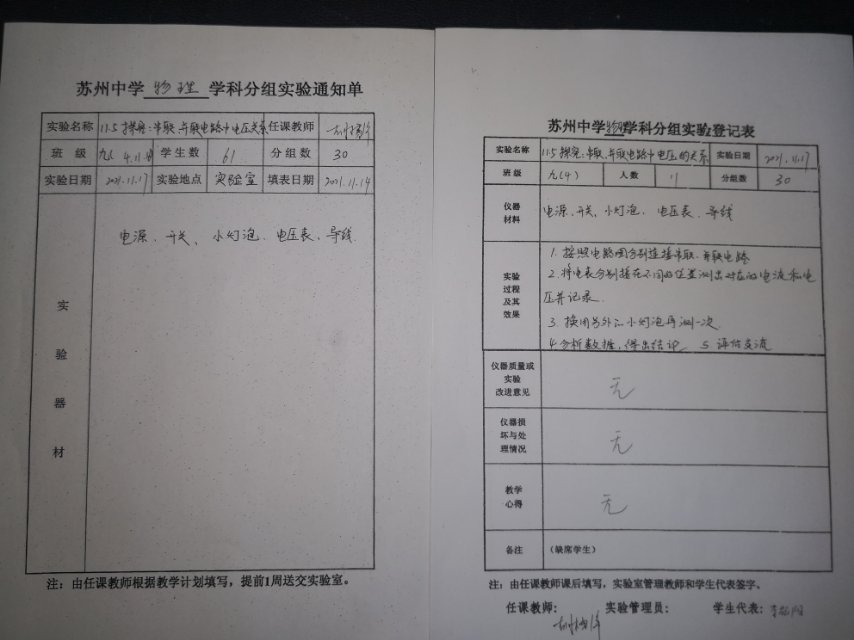 苏州中学 物理 学科分组实验通知单
实验名称 11.5探究:串联、并联电路中电压关系 任课教师
班 级 九 4.11.4 学生数 61 分组数 30
实验日期 2021.11.17 实验地点 实验室 填表日期 2021.11.14
实验器材
电源、开关、小灯泡、电压表、导线.
注:由任课教师根据教学计划填写,提前1周送交实验室。
苏州中学物理学科分组实验登记表
实验名称 11.5探究:串联、并联电路中电压的关系 实验日期 2021.11.17
班级 九(4) 人数 分组数 30
仪器材料
电源、开关、小灯泡、电压表、导线
实验过程及其效果
1. 按照电路图分别连接串联、并联电路
2. 将电表分别接在不同的位置测出对应的电流和电
压并记录.
3. 换用另外 小灯泡再测一次.
4. 分析数据,得出结论 5. 评估交流
仪器质量或实验改进意见
无
仪器损坏与处理情况
无
教学心得
无
备注 (缺席学生)
注:由任课教师课后填写,实验室管理教师和学生代表签字、
任课教师: 实验管理员: 学生代表: